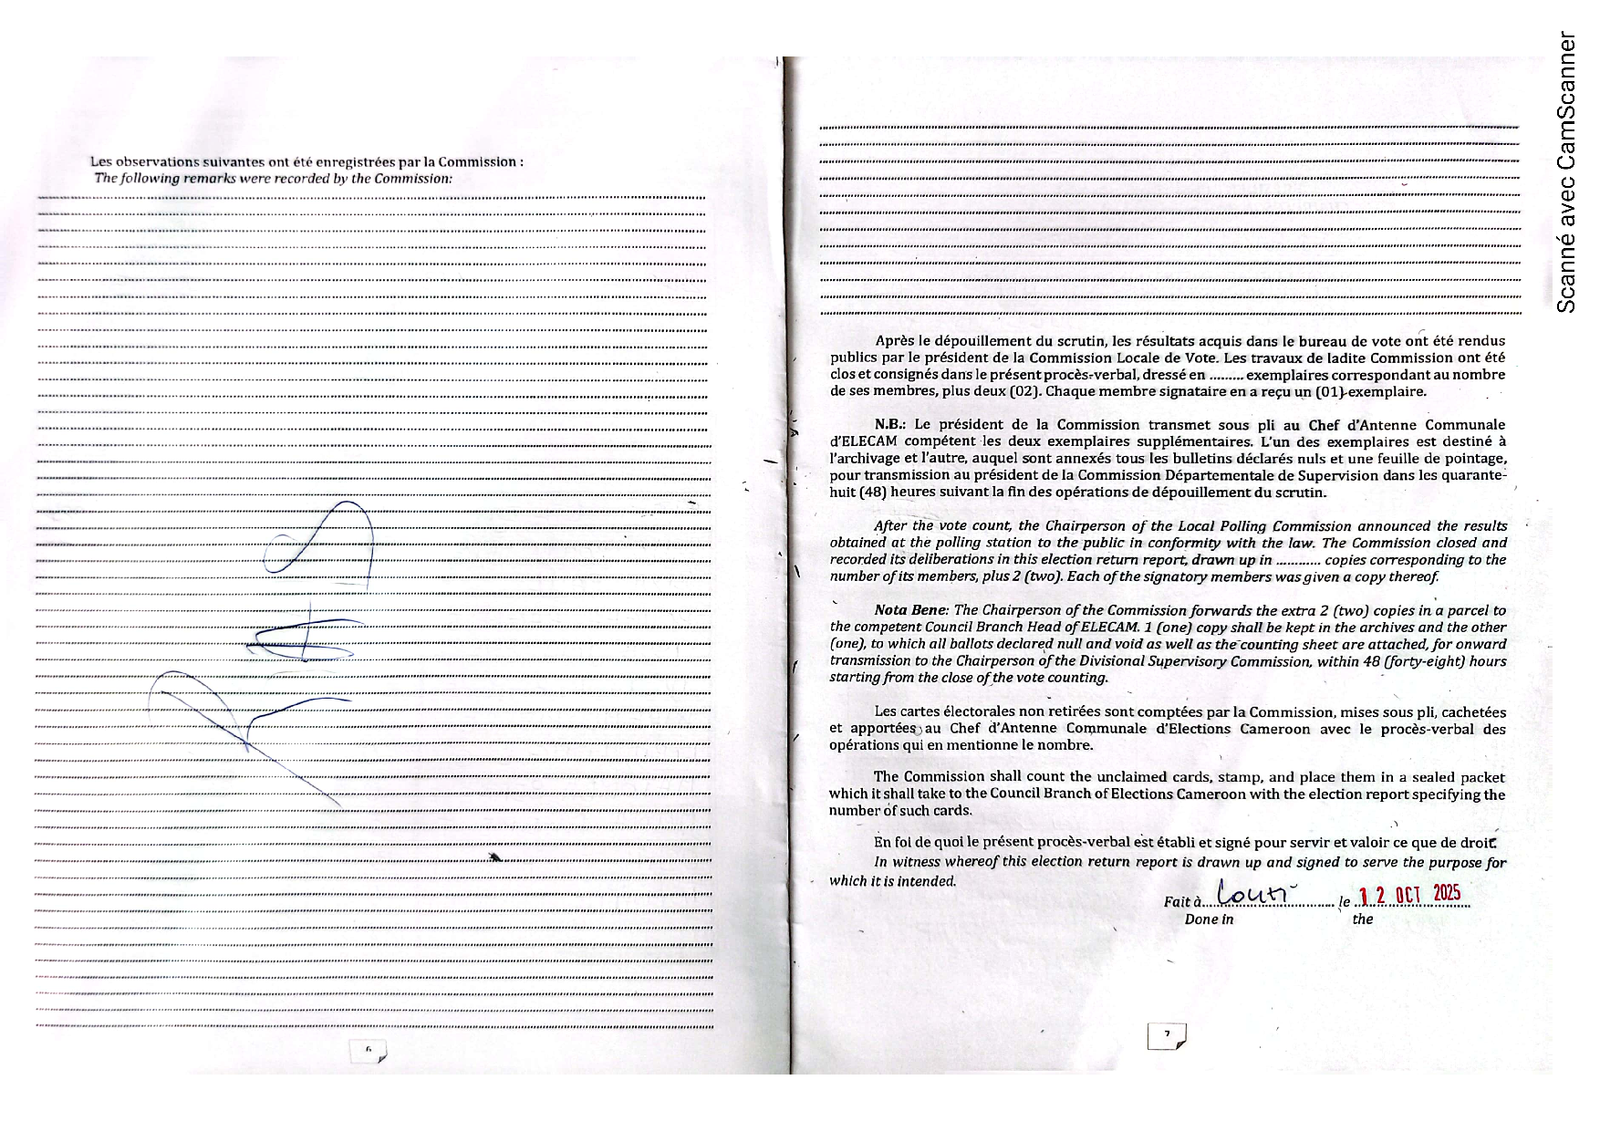 Les observations suivantes ont été enregistrées par la Commission :
The following remarks were recorded by the Commission:
6
Après le dépouillement du scrutin, les résultats acquis dans le bureau de vote ont été rendus
publics par le président de la Commission Locale de Vote. Les travaux de ladite Commission ont été
clos et consignés dans le présent procès-verbal, dressé en ......... exemplaires correspondant au nombre
de ses membres, plus deux (02). Chaque membre signataire en a reçu un (01) exemplaire.
N.B.: Le président de la Commission transmet sous pli au Chef d'Antenne Communale
d'ELECAM compétent les deux exemplaires supplémentaires. L'un des exemplaires est destiné à
l'archivage et l'autre, auquel sont annexés tous les bulletins déclarés nuls et une feuille de pointage,
pour transmission au président de la Commission Départementale de Supervision dans les quarante-
huit (48) heures suivant la fin des opérations de dépouillement du scrutin.
After the vote count, the Chairperson of the Local Polling Commission announced the results
obtained at the polling station to the public in conformity with the law. The Commission closed and
recorded its deliberations in this election return report, drawn up in ............ copies corresponding to the
number of its members, plus 2 (two). Each of the signatory members was given a copy thereof.
Nota Bene: The Chairperson of the Commission forwards the extra 2 (two) copies in a parcel to
the competent Council Branch Head of ELECAM. 1 (one) copy shall be kept in the archives and the other
(one), to which all ballots declared null and void as well as the counting sheet are attached, for onward
transmission to the Chairperson of the Divisional Supervisory Commission, within 48 (forty-eight) hours
starting from the close of the vote counting.
Les cartes électorales non retirées sont comptées par la Commission, mises sous pli, cachetées
et apportées au Chef d'Antenne Communale d'Elections Cameroon avec le procès-verbal des
opérations qui en mentionne le nombre.
The Commission shall count the unclaimed cards, stamp, and place them in a sealed packet
which it shall take to the Council Branch of Elections Cameroon with the election report specifying the
number of such cards.
En foi de quoi le présent procès-verbal est établi et signé pour servir et valoir ce que de droit
In witness whereof this election return report is drawn up and signed to serve the purpose for
which it is intended.
Fait à ... le 12 OCT 2025
Done in the
7
Scanné avec CamScanner